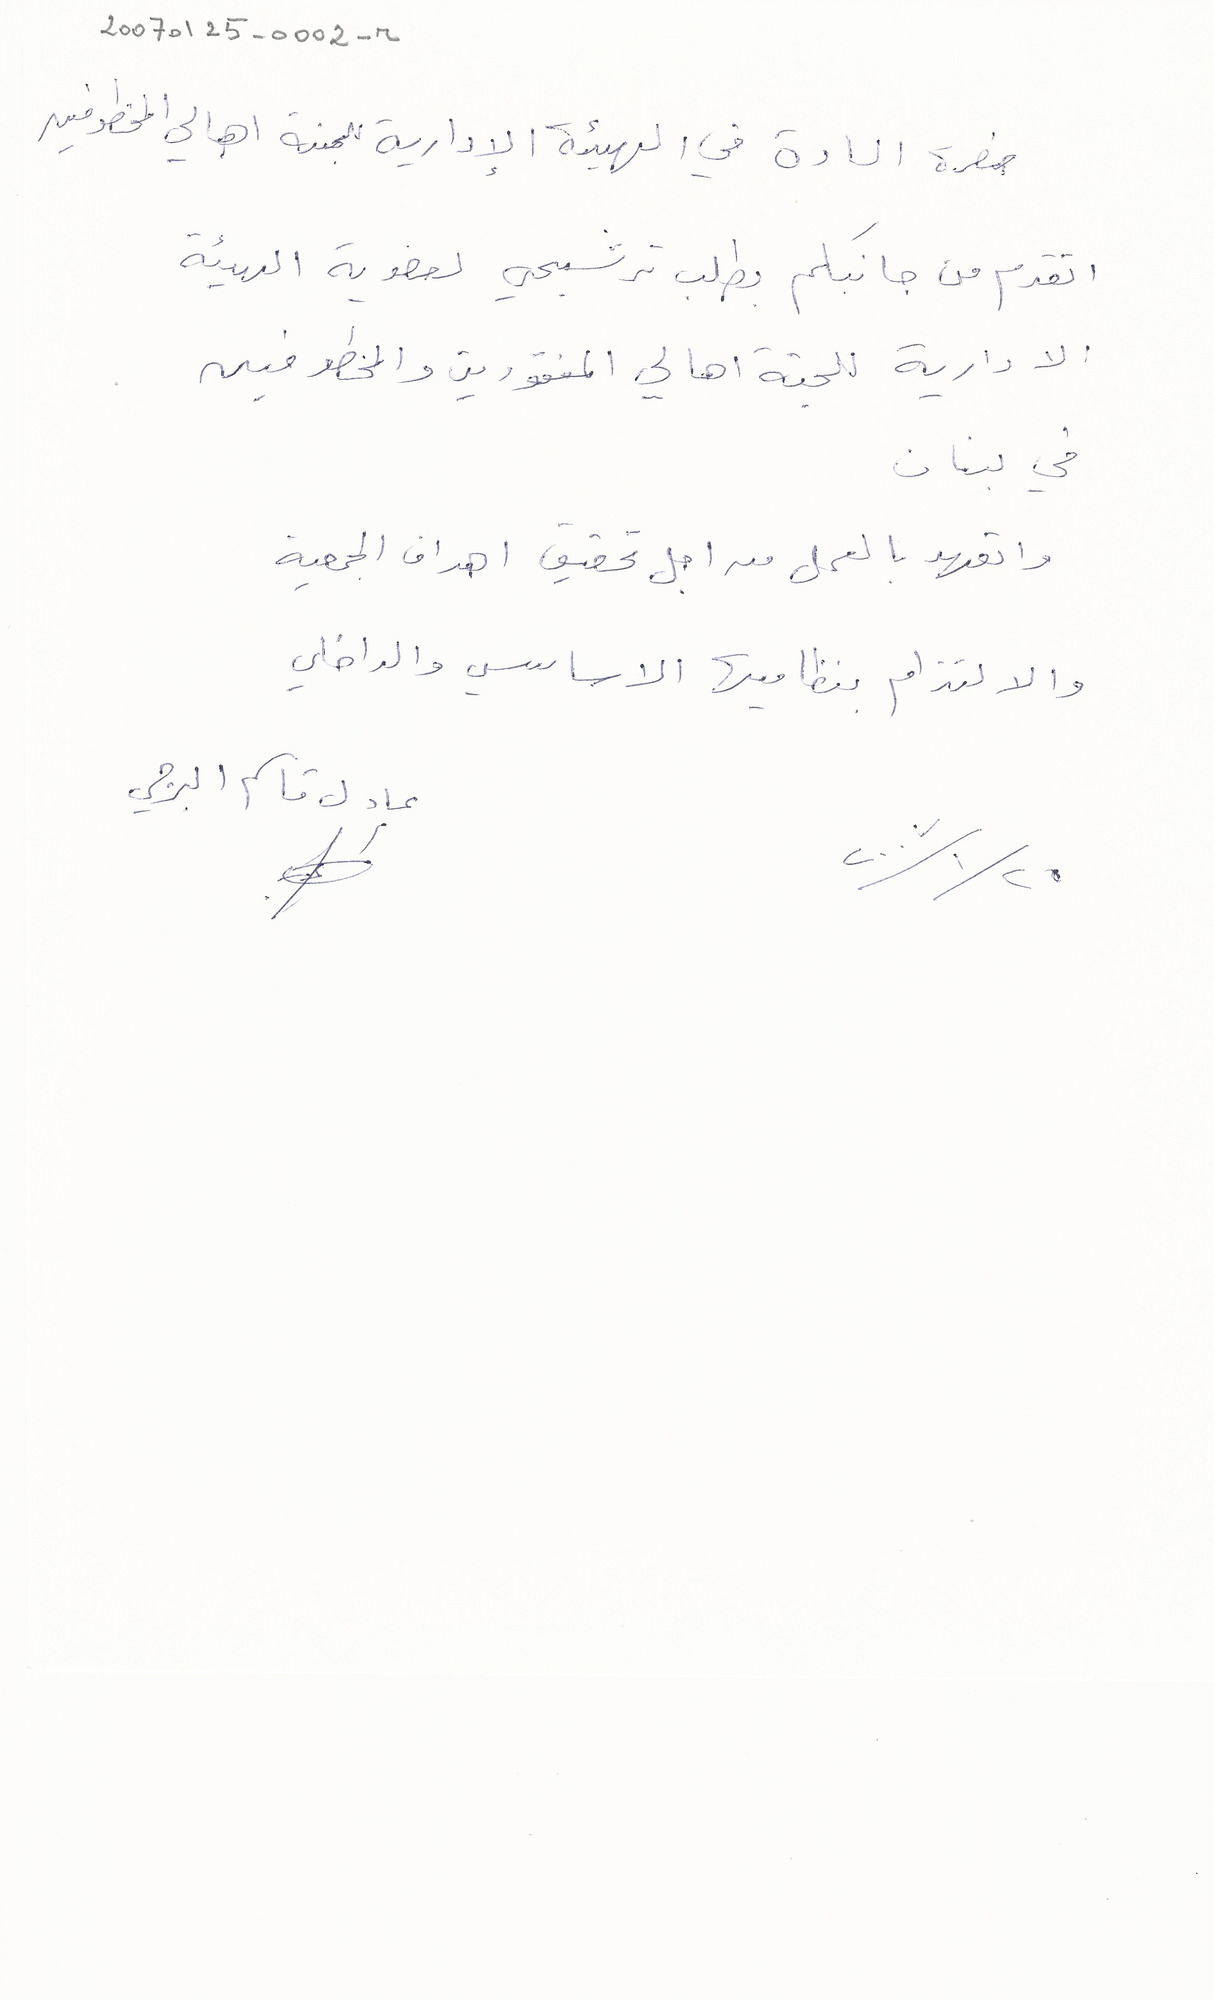 20070125-0002-r
حضرة السادة في الهيئة الإدارية للجنة اهالي المخطوفين
اتقدم من جانبكم بطلب ترشيحي لعضوية الهيئة
الادارية للجنة اهالي المفقودين والمخطوفين
في لبنان
واتعهد بالعمل من اجل تحقيق اهداف الجمعية
والالتزام بنظاميها الاساسي والداخلي
عادل قاسم البرجي
٢٥/١/٢٠٠٧